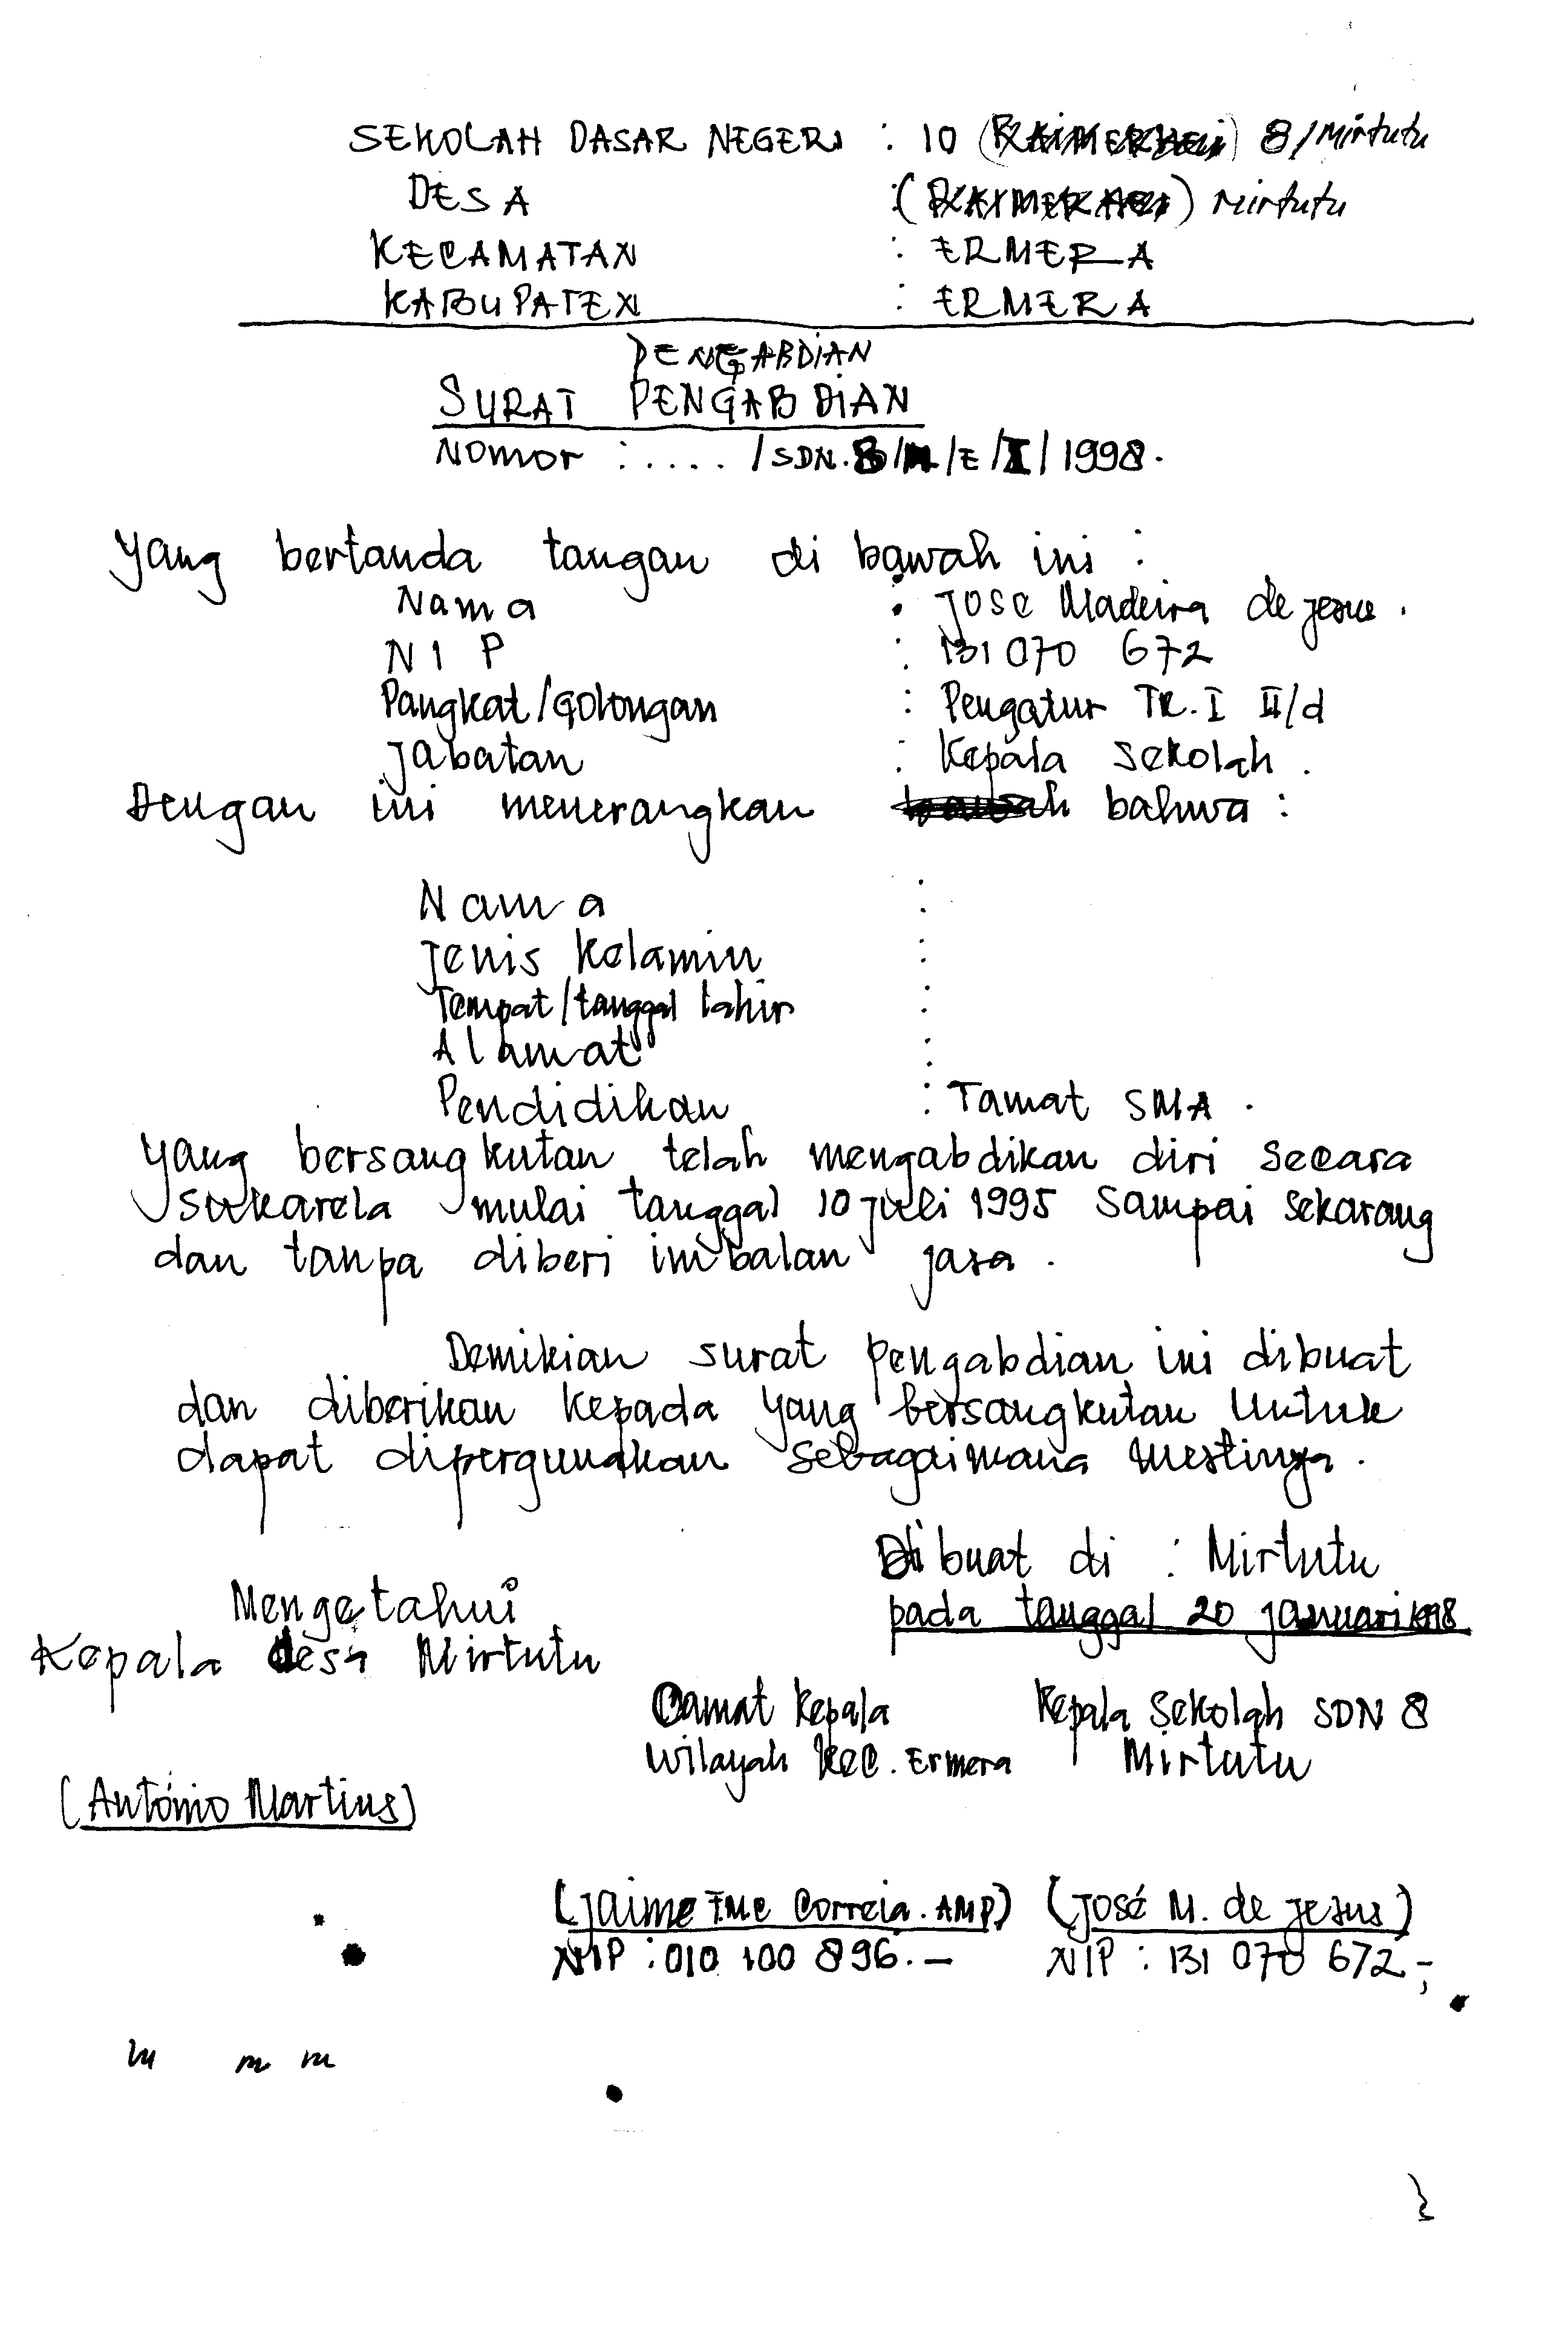 SEKOLAH DASAR NEGERI : 10 (RAIMERHEI) 8/Mirtutu
DESA : (RAIMERHEI) Mirtutu
KECAMATAN : ERMERA
KABUPATEN : ERMERA
PENGABDIAN
SURAT PENGABDIAN
Nomor : .... /SDN.8/M/E/I/1998.
Yang bertanda tangan di bawah ini :
Nama : Jose Madeira de jesus.
NIP : 131 070 672
Pangkat/Golongan : Pengatur TK.I II/d
Jabatan : Kepala Sekolah.
Dengan ini menerangkan bahwa :
Nama :
Jenis Kelamin :
Tempat/tanggal lahir :
Alamat :
Pendidikan : Tamat SMA.
Yang bersangkutan telah mengabdikan diri secara
sukarela mulai tanggal 10 juli 1995 sampai sekarang
dan tanpa diberi imbalan jasa.
Demikian surat pengabdian ini dibuat
dan diberikan kepada yang bersangkutan untuk
dapat dipergunakan sebagaimana mestinya.
Dibuat di : Mirtutu
pada tanggal 20 januari 1998
Mengetahui
Kepala desa Mirtutu
Camat Kepala
Wilayah Kec. Ermera
Kepala Sekolah SDN 8
Mirtutu
(António Martins)
(Jaime FMC Correia. AMP) (José M. de jesus)
NIP : 010 100 896.- NIP : 131 070 672,-
m m m